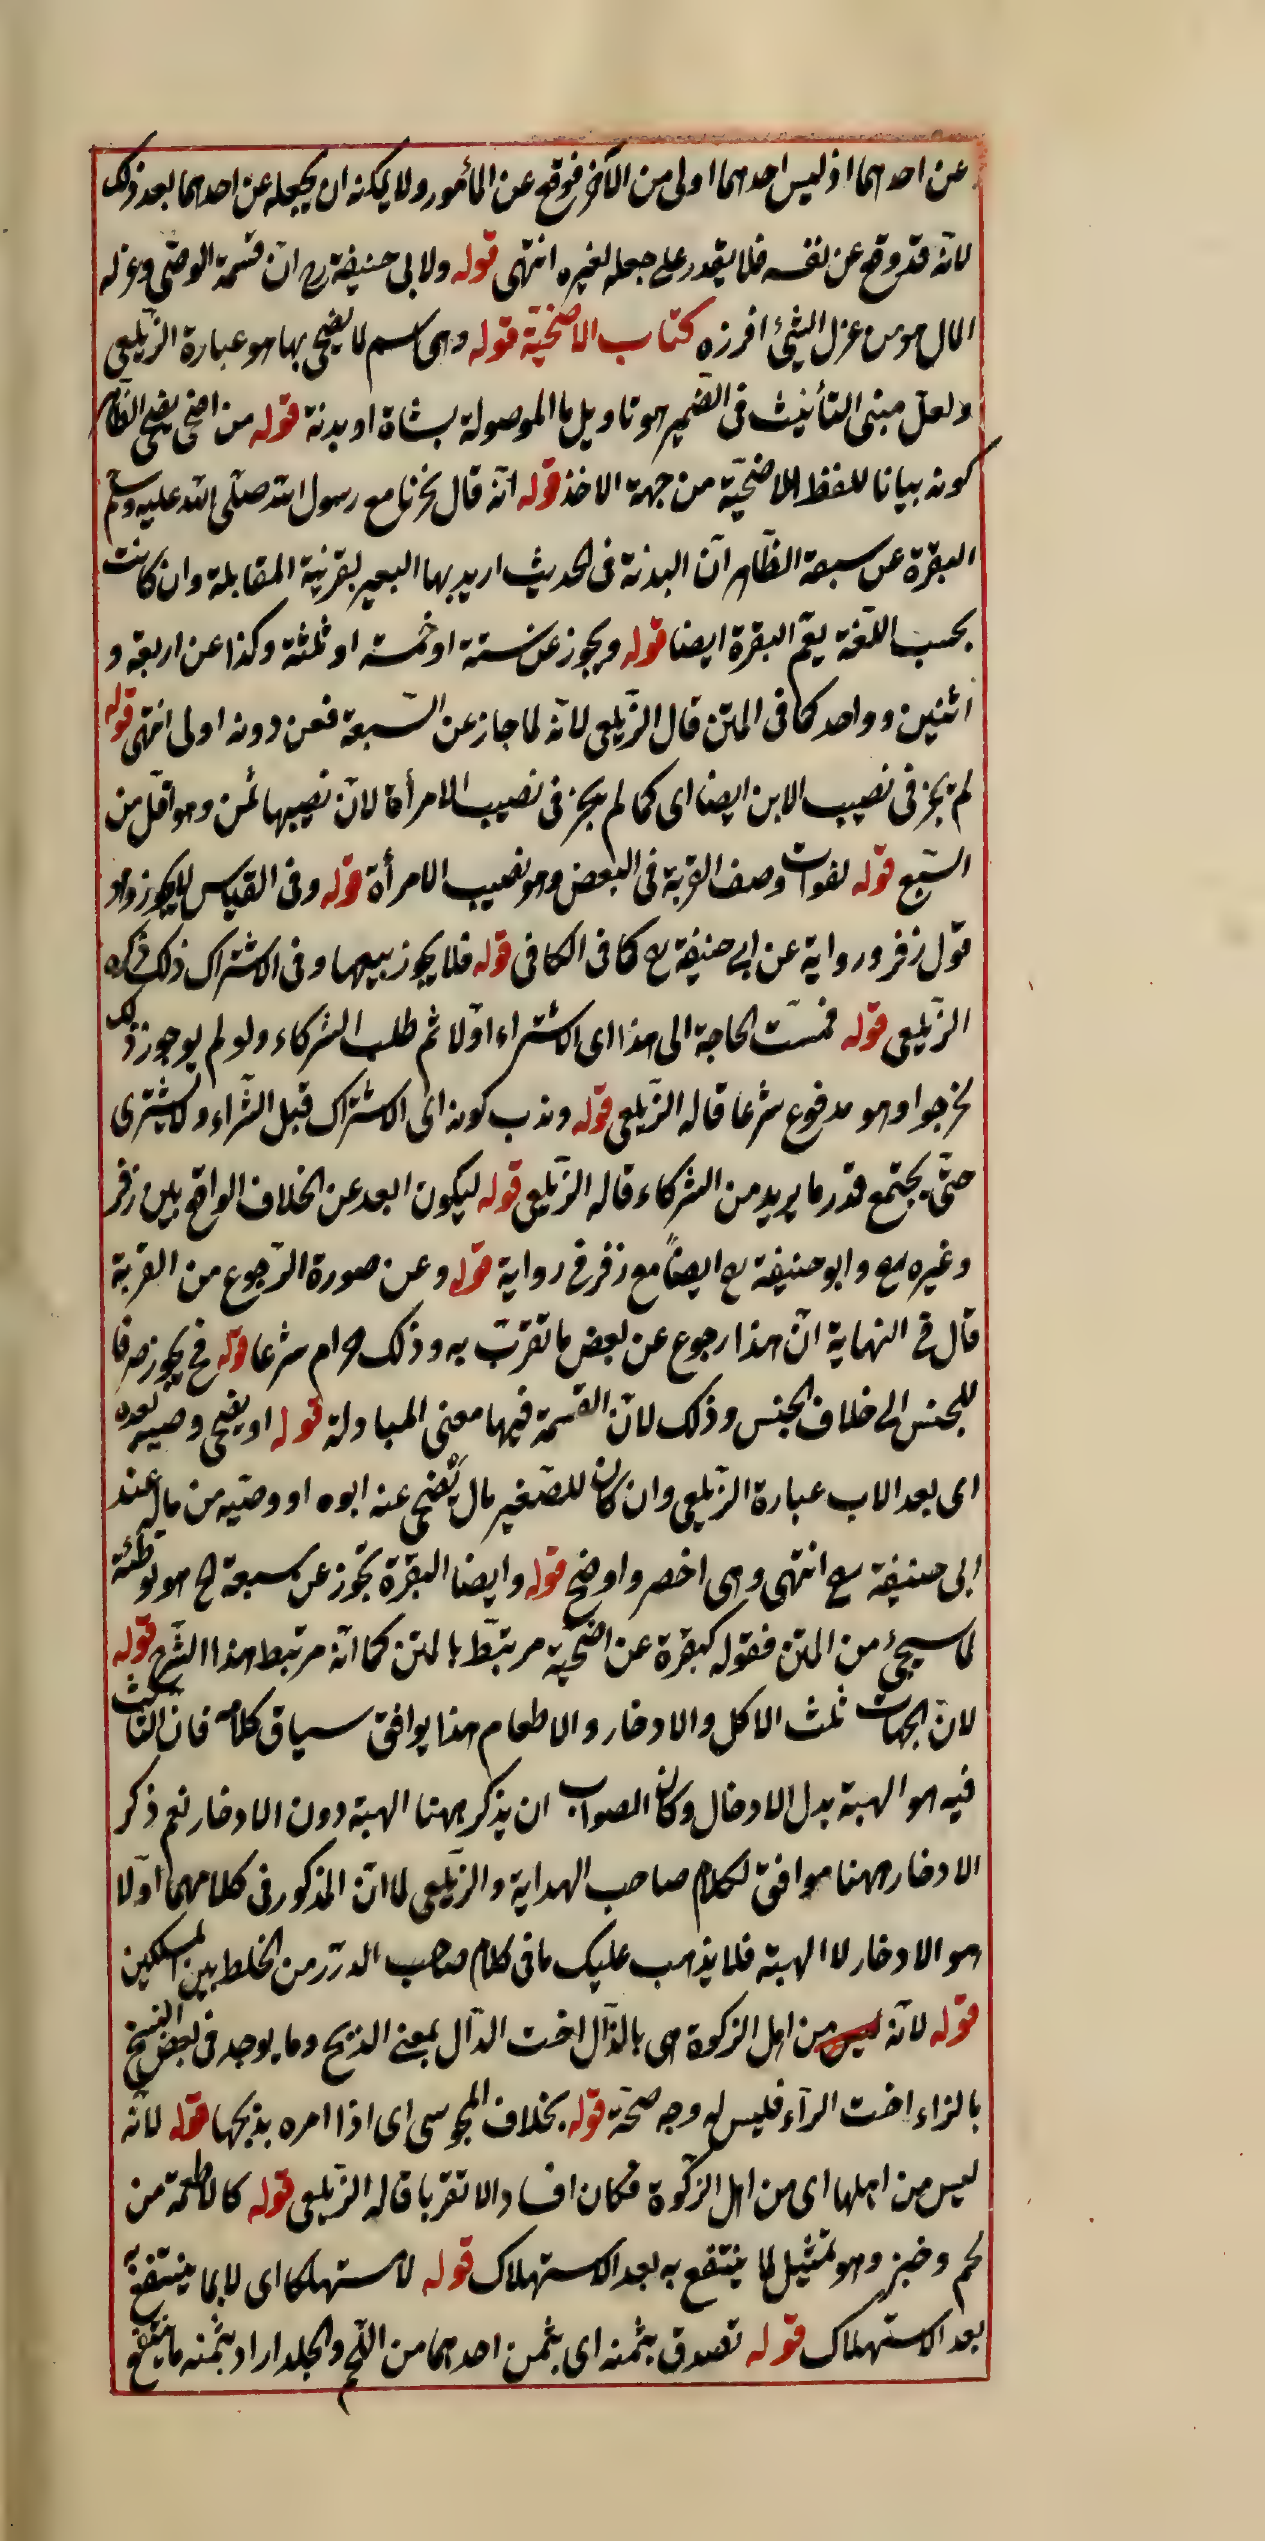 عن احدهما اذ ليس احدهما اولى من الآخر فوقع عن المأمور ولا يمكنه ان يجعله عن احدهما بعد ذلك
لانّه قد وقع عن نفسه فلا يقدر على جعله لغيره انتهى قوله ولابى حنيفة رح ان قسمة الوصّى وعزله
المال هو من عزل الشئ افرزه كتاب الاضحيّة قوله وهى اسم لما يضحّى بها هو عبارة الزّيلعى
ولعلّ مبنى التأنيث فى الضّمير هو تاويل ما الموصولة بشاة او بدنة قوله من اضحى يضحى الظّاهر
كونه بيانا للفظ الاضحيّة من جهة الاخذ قوله انّه قال نحرنا مع رسول الله صلّى الله عليه وسلّم
البقرة عن سبعة الظّاهر انّ البدنة فى الحديث اريد بها البعير بقرنية المقابلة وان كانت
بحسب اللّغة يعمّ البقرة ايضا قوله ويجوز عن ستة او خمسة او ثلثة وكذا عن اربعة و
اثنين وواحد كما فى المتن قال الزّيلعى لانّه لما جاز عن السّبعة فعن دونه اولى انتهى قوله
لم يجز فى نصيب الابن ايضا اى كما لم يجز فى نصيب الامرأة لانّ نصيبها ثمن وهو اقلّ من
السّبع قوله لفوات وصف القربة فى البعض وهو نصيب الامرأة قوله وفى القياس لا يجوز وهو
قول زفر ورواية عن ابى حنيفة رح كما فى الكافى قوله فلا يجوز بيعها وفى الاشتراك ذلك ذكره
الزّيلعى قوله فمسّت الحاجة الى هذا اى الاشتراء اوّلا ثم طلب الشركاء ولو لم يوجوز ذلك
لخرجوا وهو مدفوع شرعا قاله الزّيلعى قوله وندب كونه اى الاشتراك قبل الشّراء ولا يشترى
حتّى يجتمع قدر ما يريد من الشركاء قاله الزّيلعى قوله ليكون ابعد عن الخلاف الواقع بين زفر
وغيره رح وابو حنيفة رح ايضاً مع زفر فى رواية قوله وعن صورة الرّجوع من القربة
قال فى النهاية انّ هذا رجوع عن بعض ما تقرّب به وذلك حرام شرعا قوله فح يجوز صرفا
للجنس الى خلاف الجنس وذلك لانّ القسمة فيها معنى المبادلة قوله او يضحى وصيه بعده
اى بعد الاب عبارة الزّيلعى وان كان للصّغير مال يُضحى عنه ابوه او وصّيه من ماله عند
ابى حنيفة رح انتهى وهى اخصر واوضح قوله وايضا البقرة تجوز عن سبعة الخ هو توطئة
لما سيجئ من المتن فقوله كبقرة عن اضحية مرتبّط بالمتن كما انّه مرتبط هذا الشّرح قوله
لانّ الجهات ثلث الاكل والادخار والاطعام هذا يوافق سياق كلامه فانّ الثالث
فيه هو الهبة بدل الادخال وكان الصواب ان يذكر ههنا الهبة دون الادخار نعم ذكر
الادخار ههنا موافق لكلام صاحب الهداية والزّيلعى لا انّ المذكور فى كلامهما اوّلا
هو الادخار لا الهبة فلا يذهب عليك ما فى كلام صاحب الدرّر من الخلط بين المسلكين
قوله لانّه من اهل الزكوة هى بالذّال اخت الدّال بمعنى الذبح وما يوجد فى بعض النسخ
بالزاء اخت الرّاء فليس له وجه صحّة قوله بخلاف المجوسى اى اذا امره بذبحها قوله لانّه
ليس من اهلها اى من اهل الزّكوة فكان افسادا لا تقربا قاله الزّيلعى قوله كالاطعمة من
لحم وخبز وهو تمثيل لما ينتفع به بعد الاستهلاك قوله لا مستهلكا اى لا بما ينتفع به
بعد الاستهلاك قوله تصدق بثمنه اى بثمن احدهما من اللّحم والجلد اراد بثمنه ما ينتفع